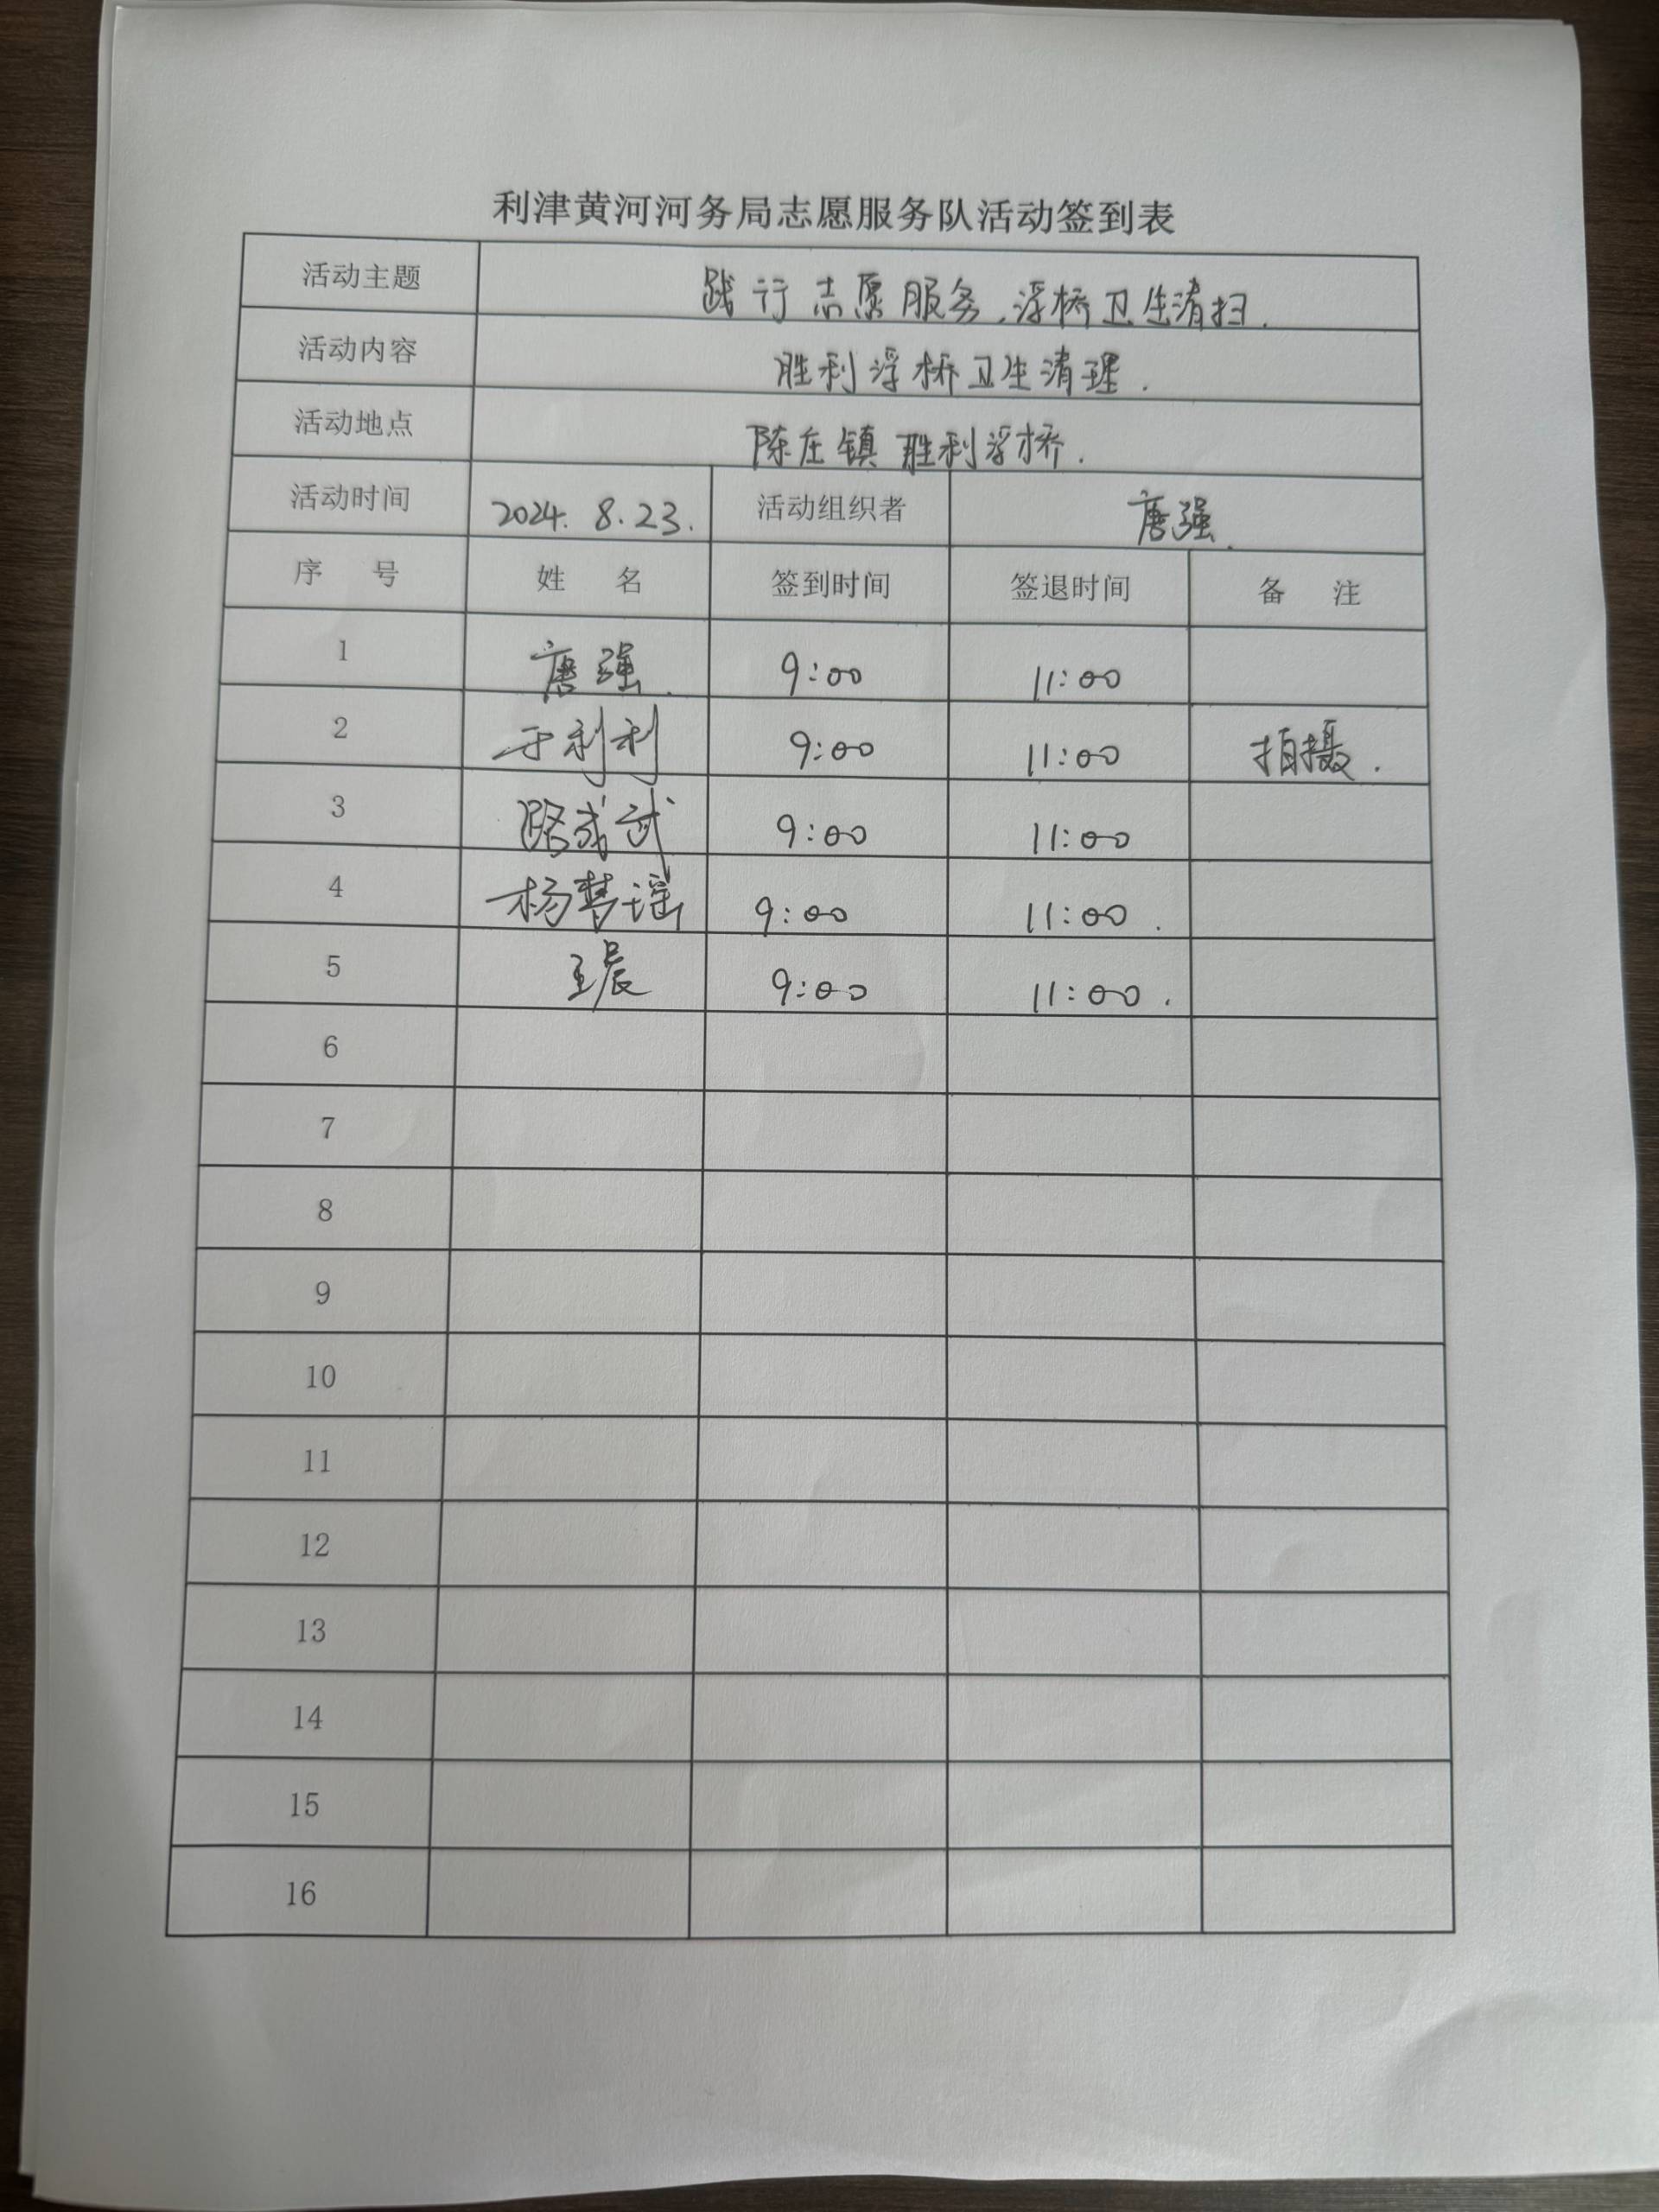 利津黄河河务局志愿服务队活动签到表
活动主题 践行志愿服务,浮桥卫生清扫.
活动内容 胜利浮桥卫生清理.
活动地点 陈庄镇胜利浮桥.
活动时间 2024.8.23. 活动组织者 唐强.
序 号 姓 名 签到时间 签退时间 备 注
1 唐强. 9:00 11:00
2 于利利 9:00 11:00 拍摄.
3 路成武 9:00 11:00
4 杨梦瑶 9:00 11:00.
5 王晨 9:00 11:00.
6
7
8
9
10
11
12
13
14
15
16